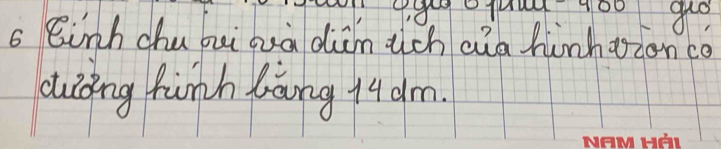 giờ
6 Tính chu vi và diện tích của hình tròn có
đường kính bằng 14 dm.
NAM HẢI